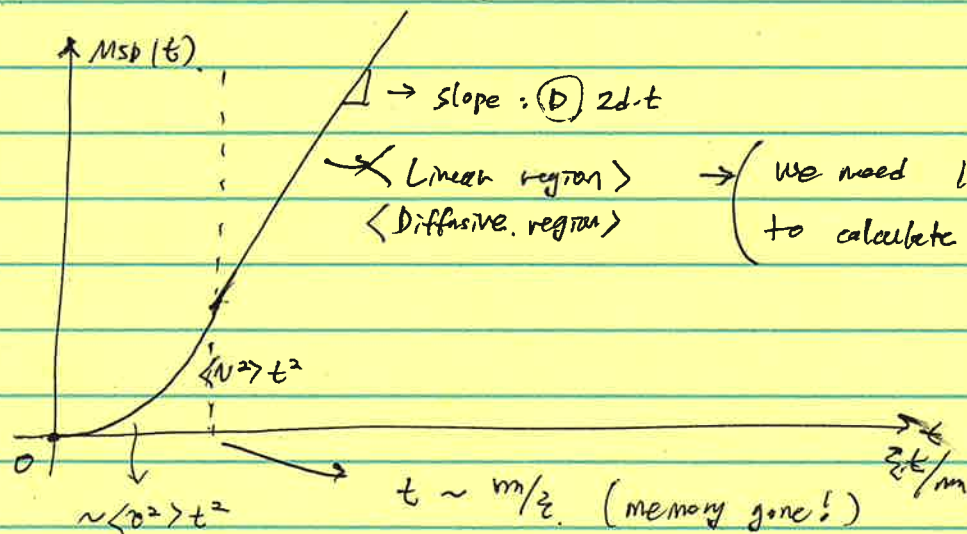 MSD(t)
→ slope : D 2d.t
< Linear region > → ( we need
< Diffusive. region > to calculate
<v²> t²
0
t
ξt/m
~<v²> t²
t ~ m/ξ. (memory gone!)